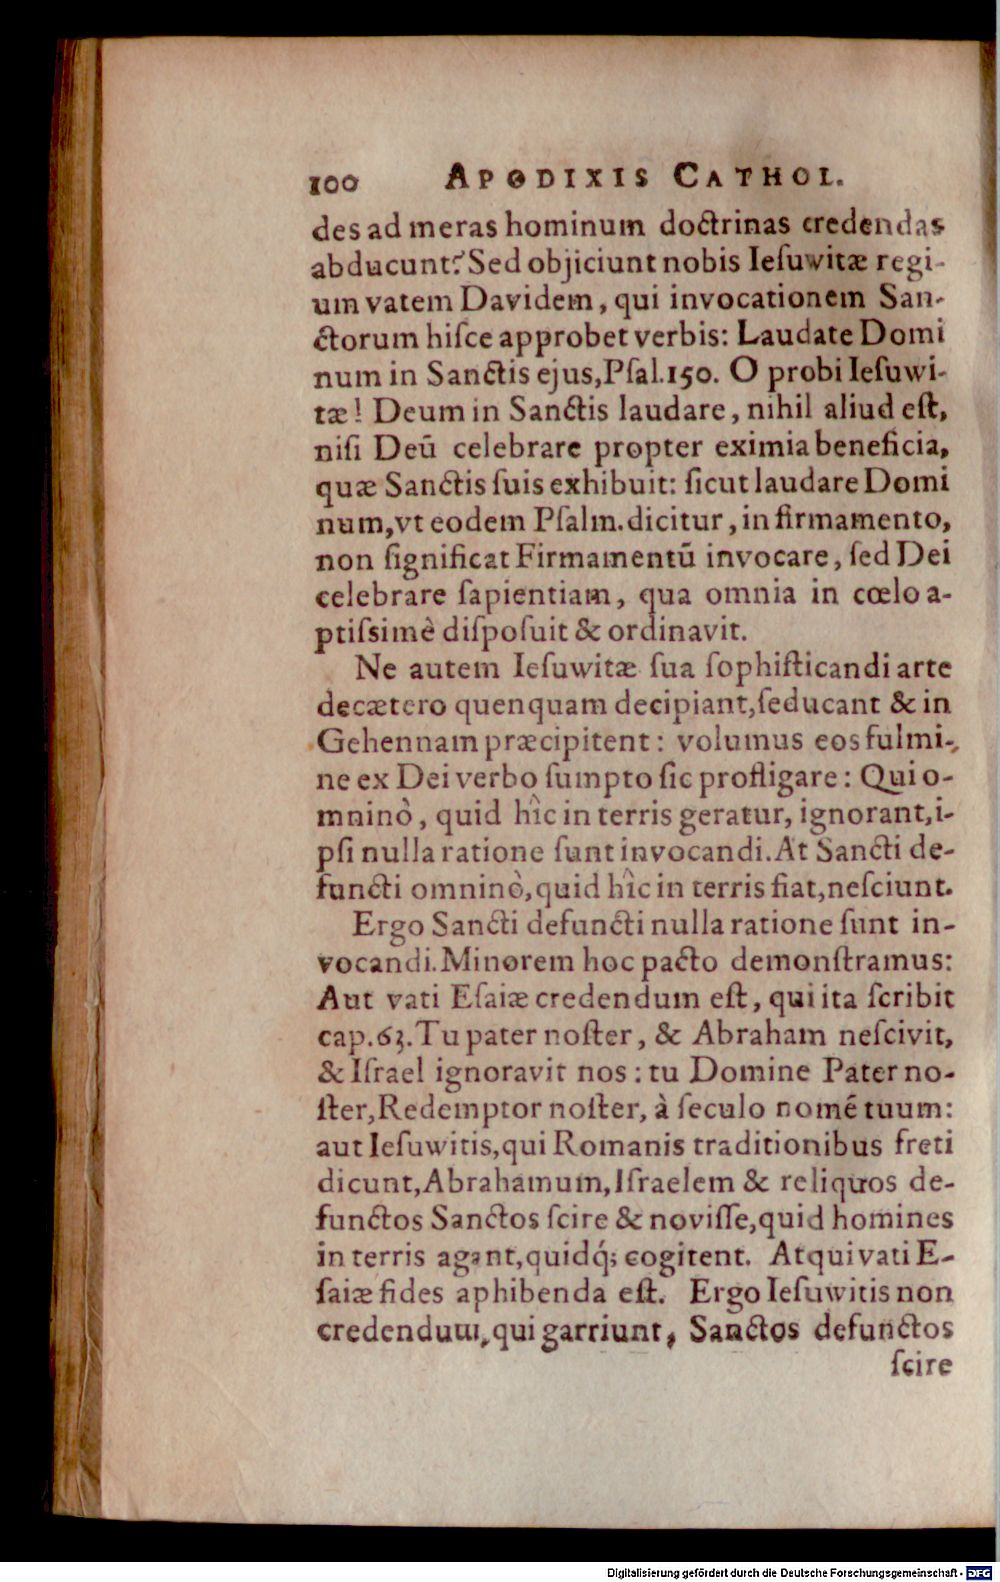 100 APODIXIS CATHOL.
des ad meras hominum doctrinas credendas
abducunt? Sed objiciunt nobis Ieſuwitæ regi-
um vatem Davidem, qui invocationem San-
ctorum hiſce approbet verbis: Laudate Domi
num in Sanctis ejus, Pſal. 150. O probi Ieſuwi-
tæ! Deum in Sanctis laudare, nihil aliud eſt,
niſi Deū celebrare propter eximia beneficia,
quæ Sanctis ſuis exhibuit: ſicut laudare Domi
num, vt eodem Pſalm. dicitur, in firmamento,
non ſignificat Firmamentū invocare, ſed Dei
celebrare ſapientiam, qua omnia in cœlo a-
ptiſsimè diſpoſuit & ordinavit.
Ne autem Ieſuwitæ ſua ſophiſticandi arte
decætero quenquam decipiant, ſeducant & in
Gehennam præcipitent: volumus eos fulmi-
ne ex Dei verbo ſumpto ſic profligare: Qui o-
mninò, quid hîc in terris geratur, ignorant, i-
pſi nulla ratione ſunt invocandi. At Sancti de-
functi omninò, quid hîc in terris fiat, neſciunt.
Ergo Sancti defuncti nulla ratione ſunt in-
vocandi. Minorem hoc pacto demonſtramus:
Aut vati Eſaiæ credendum eſt, qui ita ſcribit
cap. 63. Tu pater noſter, & Abraham neſcivit,
& Iſrael ignoravit nos: tu Domine Pater no-
ſter, Redemptor noſter, à ſeculo nomē tuum:
aut Ieſuwitis, qui Romanis traditionibus freti
dicunt, Abrahamum, Iſraelem & reliquos de-
functos Sanctos ſcire & noviſſe, quid homines
in terris agant, quidq́; cogitent. Atqui vati E-
ſaiæ fides aphibenda eſt. Ergo Ieſuwitis non
credendum, qui garriunt, Sanctos defunctos
ſcire
Digitalisierung gefördert durch die Deutsche Forschungsgemeinschaft - DFG